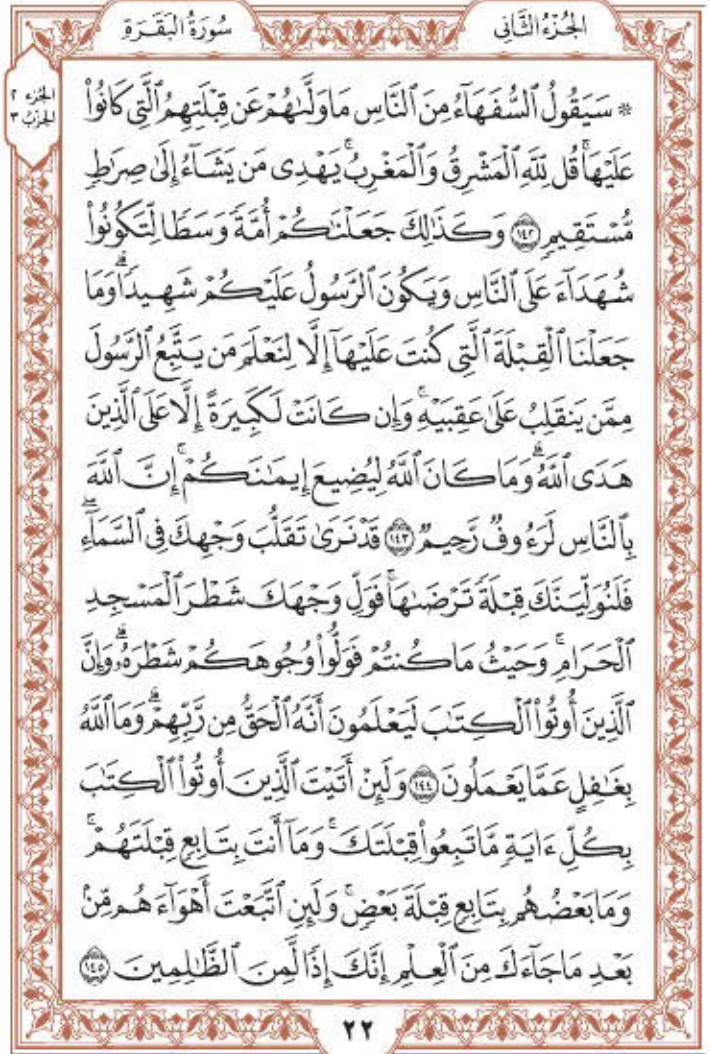 الجُزْءُ الثَّانِي
سُورَةُ البَقَرَةِ
الجزء ٢
الحزب ٣
۞ سَيَقُولُ ٱلسُّفَهَآءُ مِنَ ٱلنَّاسِ مَا وَلَّىٰهُمْ عَن قِبْلَتِهِمُ ٱلَّتِى كَانُوا۟
عَلَيْهَا ۚ قُل لِّلَّهِ ٱلْمَشْرِقُ وَٱلْمَغْرِبُ ۚ يَهْدِى مَن يَشَآءُ إِلَىٰ صِرَٰطٍ
مُّسْتَقِيمٍ ﴿١٤٢﴾ وَكَذَٰلِكَ جَعَلْنَٰكُمْ أُمَّةً وَسَطًا لِّتَكُونُوا۟
شُهَدَآءَ عَلَى ٱلنَّاسِ وَيَكُونَ ٱلرَّسُولُ عَلَيْكُمْ شَهِيدًا ۗ وَمَا
جَعَلْنَا ٱلْقِبْلَةَ ٱلَّتِى كُنتَ عَلَيْهَآ إِلَّا لِنَعْلَمَ مَن يَتَّبِعُ ٱلرَّسُولَ
مِمَّن يَنقَلِبُ عَلَىٰ عَقِبَيْهِ ۚ وَإِن كَانَتْ لَكَبِيرَةً إِلَّا عَلَى ٱلَّذِينَ
هَدَى ٱللَّهُ ۗ وَمَا كَانَ ٱللَّهُ لِيُضِيعَ إِيمَٰنَكُمْ ۚ إِنَّ ٱللَّهَ
بِٱلنَّاسِ لَرَءُوفٌ رَّحِيمٌ ﴿١٤٣﴾ قَدْ نَرَىٰ تَقَلُّبَ وَجْهِكَ فِى ٱلسَّمَآءِ ۖ
فَلَنُوَلِّيَنَّكَ قِبْلَةً تَرْضَىٰهَا ۚ فَوَلِّ وَجْهَكَ شَطْرَ ٱلْمَسْجِدِ
ٱلْحَرَامِ ۚ وَحَيْثُ مَا كُنتُمْ فَوَلُّوا۟ وُجُوهَكُمْ شَطْرَهُۥ ۗ وَإِنَّ
ٱلَّذِينَ أُوتُوا۟ ٱلْكِتَٰبَ لَيَعْلَمُونَ أَنَّهُ ٱلْحَقُّ مِن رَّبِّهِمْ ۗ وَمَا ٱللَّهُ
بِغَٰفِلٍ عَمَّا يَعْمَلُونَ ﴿١٤٤﴾ وَلَئِنْ أَتَيْتَ ٱلَّذِينَ أُوتُوا۟ ٱلْكِتَٰبَ
بِكُلِّ ءَايَةٍ مَّا تَبِعُوا۟ قِبْلَتَكَ ۚ وَمَآ أَنتَ بِتَابِعٍ قِبْلَتَهُمْ ۚ
وَمَا بَعْضُهُم بِتَابِعٍ قِبْلَةَ بَعْضٍ ۚ وَلَئِنِ ٱتَّبَعْتَ أَهْوَآءَهُم مِّنۢ
بَعْدِ مَا جَآءَكَ مِنَ ٱلْعِلْمِ ۙ إِنَّكَ إِذًا لَّمِنَ ٱلظَّٰلِمِينَ ﴿١٤٥﴾
٢٢